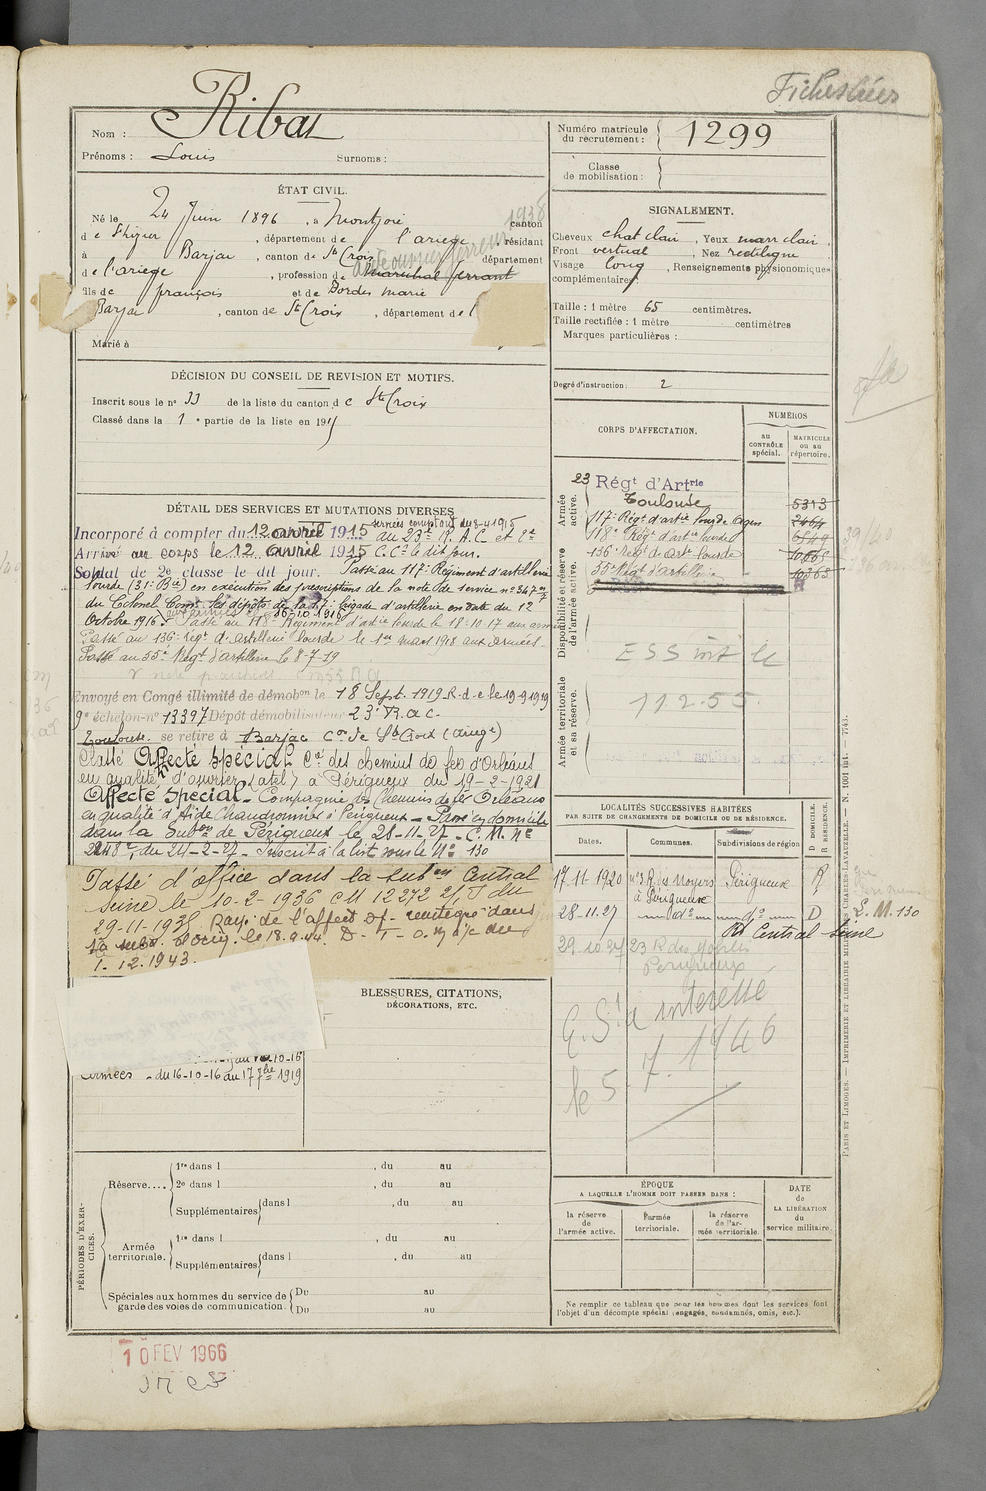 Fiches liées
Nom : Ribat
Prénoms : Louis Surnoms :
Numéro matricule du recrutement : 1299
Classe de mobilisation :
ÉTAT CIVIL.
Né le 24 Juin 1896, à Montjoie canton
de St Lizier, département de l'ariege, résidant
à Barjac, canton de Ste Croix département
de l'ariege, profession de marechal ferrant
fils de françois et de Bordes Marie
Barjac, canton de Ste Croix, département de l
Marié à
1938
SIGNALEMENT.
Cheveux chat clair, Yeux marr clair,
Front vertical, Nez rectiligne
Visage long, Renseignements physionomiques
complémentaires :
Taille : 1 mètre 65 centimètres.
Taille rectifiée : 1 mètre centimètres
Marques particulières :
Degré d'instruction : 2
DÉCISION DU CONSEIL DE REVISION ET MOTIFS.
Inscrit sous le no 33 de la liste du canton de Ste Croix
Classé dans la 1e partie de la liste en 1915
CORPS D'AFFECTATION.
NUMÉROS
au CONTRÔLE spécial.
MATRICULE ou au répertoire.
Armée active.
Disponibilité et réserve de l'armée active.
Armée territoriale et sa réserve.
23 Régt d'Artrie Toulouse 5313
117e Régt d'artie lourde Agen 2464
118e Régt d'artie lourde 6549
136e Régt d'artie lourde
55e Régt d'artillerie 10365
112.55
DÉTAIL DES SERVICES ET MUTATIONS DIVERSES
services comptent du 8-4-1915
Incorporé à compter du 12 avril 1915 au 23e R. A. C et 2e
Arrivé au corps le 12 avril 1915 C. C. le dit jour.
Soldat de 2e classe le dit jour. Passé au 117e Régiment d'artillerie
lourde (31e Bie) en exécution des prescriptions de la note de service no 347
du Colonel Comt les dépôts de la 17e brigade d'artillerie en date du 12
Octobre 1916. Passé au 118e Régiment d'artie lourde le 18-10-17 aux armées
Passé au 136e régt d'artillerie lourde le 1er mars 1918 aux armées.
Passé au 55e Régt d'artillerie le 8-7-19
Envoyé en Congé illimité de démobon le 18 Sept. 1919. R.d.c le 19-9-1919
9e échelon-no 13397 Dépôt démobilisateur 23e R.a.c.
Toulouse. se retire à Barjac Con de Ste Croix (ariège)
Classé Affecté Spécial Cie des chemins de fer d'Orléans
en qualité d'ouvrier (atel) à Périgueux du 19-2-1921
Affecté Spécial - Compagnie des Chemins de fer Orléans
en qualité d'Aide Chaudronnier à Périgueux - Passé en domicile
dans la Subon de Périgueux le 28-11-27 - C. M. no
2248, du 24-2-27 - Inscrit à la list sous le No 130
Passé d'office dans la subon Central
Seine le 10-2-1936 CM 12272 2/J du
29-11-1935 Rayé de l'affect Sp - reintégré dans
sa subd. d'orig. le 18.9.44. D-T-O. n° du
1.12.1943.
LOCALITÉS SUCCESSIVES HABITÉES
PAR SUITE DE CHANGEMENTS DE DOMICILE OU DE RÉSIDENCE.
Dates. Communes. Subdivisions de région D DOMICILE. R RÉSIDENCE.
17-11-1920 no 3 R. des Noyers à Périgueux Périgueux R
28-11-27 do do D L. M. 130
Rt Central Seine
29.10.27 23 R des Périgueux
le 5.7.1946
BLESSURES, CITATIONS, DÉCORATIONS, ETC.
10-16
Armées - du 16-10-16 au 17 7bre 1919
PÉRIODES D'EXERCICES.
Réserve.... 1re dans l , du au
2e dans l , du au
Supplémentaires dans l , du au
Armée territoriale. 1re dans l , du au
Supplémentaires dans l , du au
Spéciales aux hommes du service de garde des voies de communication. Du au
Du au
ÉPOQUE
A LAQUELLE L'HOMME DOIT PASSER DANS :
la réserve de l'armée active.
l'armée territoriale.
la réserve de l'armée territoriale.
DATE de LA LIBÉRATION du service militaire.
Ne remplir ce tableau que pour les hommes dont les services font
l'objet d'un décompte spécial (engagés, condamnés, omis, etc.).
PARIS ET LIMOGES. — IMPRIMERIE ET LIBRAIRIE MILITAIRES CHARLES-LAVAUZELLE. — N. 1001 int. — 7743.
10 FEV 1966